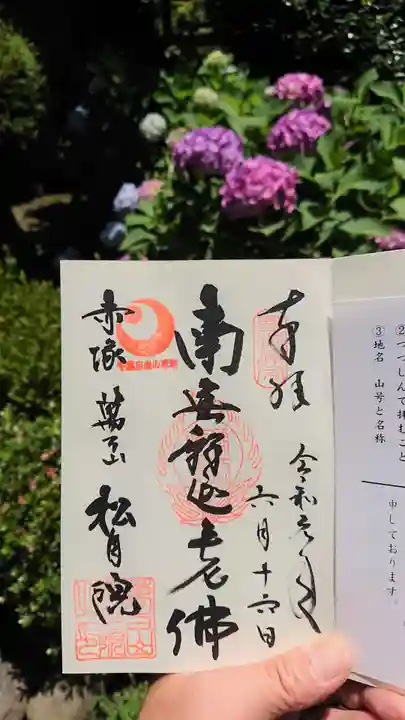 ②
つつしんで拝むこと
③
地名　山号と名称
申しております。
奉拝
令和元年
六月十六日
南無釈迦牟尼佛
赤塚　萬吉山　松月院